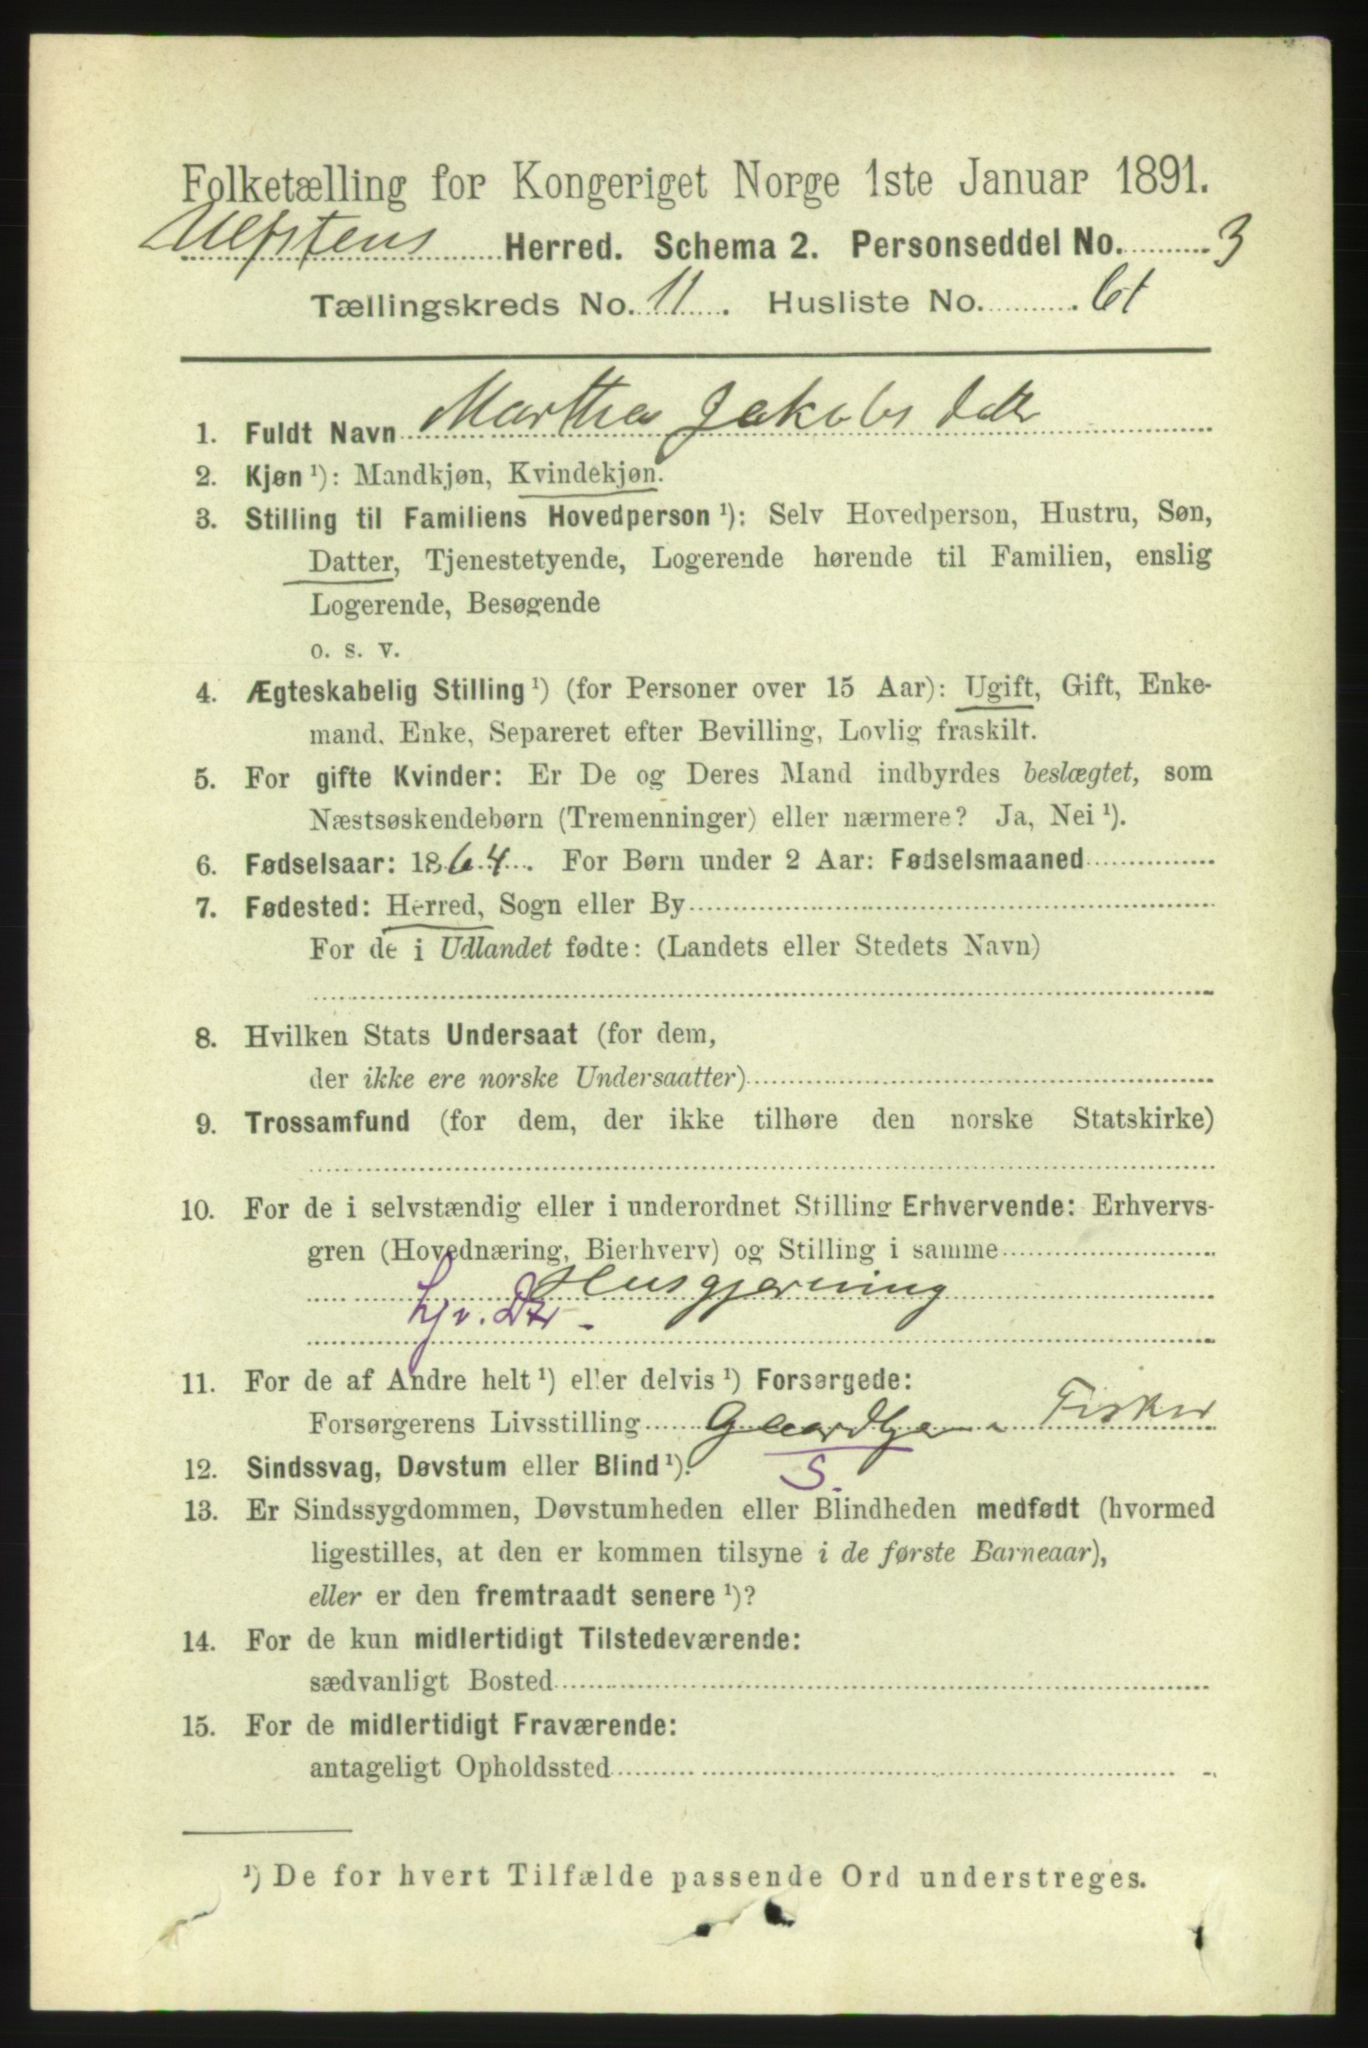 Folketælling for Kongeriget Norge 1ste Januar 1891.
Ulfstens Herred. Schema 2. Personseddel No. 3
Tællingskreds No. 11. Husliste No. 61
1. Fuldt Navn Martha Jakobsdatter
2. Kjøn ¹): Mandkjøn, Kvindekjøn.
3. Stilling til Familiens Hovedperson ¹): Selv Hovedperson, Hustru, Søn,
Datter, Tjenestetyende, Logerende hørende til Familien, enslig
Logerende, Besøgende
o. s. v.
4. Ægteskabelig Stilling ¹) (for Personer over 15 Aar): Ugift, Gift, Enke-
mand, Enke, Separeret efter Bevilling, Lovlig fraskilt.
5. For gifte Kvinder: Er De og Deres Mand indbyrdes beslægtet, som
Næstsøskendebørn (Tremenninger) eller nærmere? Ja, Nei ¹).
6. Fødselsaar: 1864. For Børn under 2 Aar: Fødselsmaaned
7. Fødested: Herred, Sogn eller By
For de i Udlandet fødte: (Landets eller Stedets Navn)
8. Hvilken Stats Undersaat (for dem,
der ikke ere norske Undersaatter)
9. Trossamfund (for dem, der ikke tilhøre den norske Statskirke)
10. For de i selvstændig eller i underordnet Stilling Erhvervende: Erhvervs-
gren (Hovednæring, Bierhverv) og Stilling i samme
Husgjerning
hjv. Dtr -
11. For de af Andre helt ¹) eller delvis ¹) Forsørgede:
Forsørgerens Livsstilling Fisker
12. Sindssvag, Døvstum eller Blind ¹). S.
13. Er Sindssygdommen, Døvstumheden eller Blindheden medfødt (hvormed
ligestilles, at den er kommen tilsyne i de første Barneaar),
eller er den fremtraadt senere ¹)?
14. For de kun midlertidigt Tilstedeværende:
sædvanligt Bosted
15. For de midlertidigt Fraværende:
antageligt Opholdssted
¹) De for hvert Tilfælde passende Ord understreges.